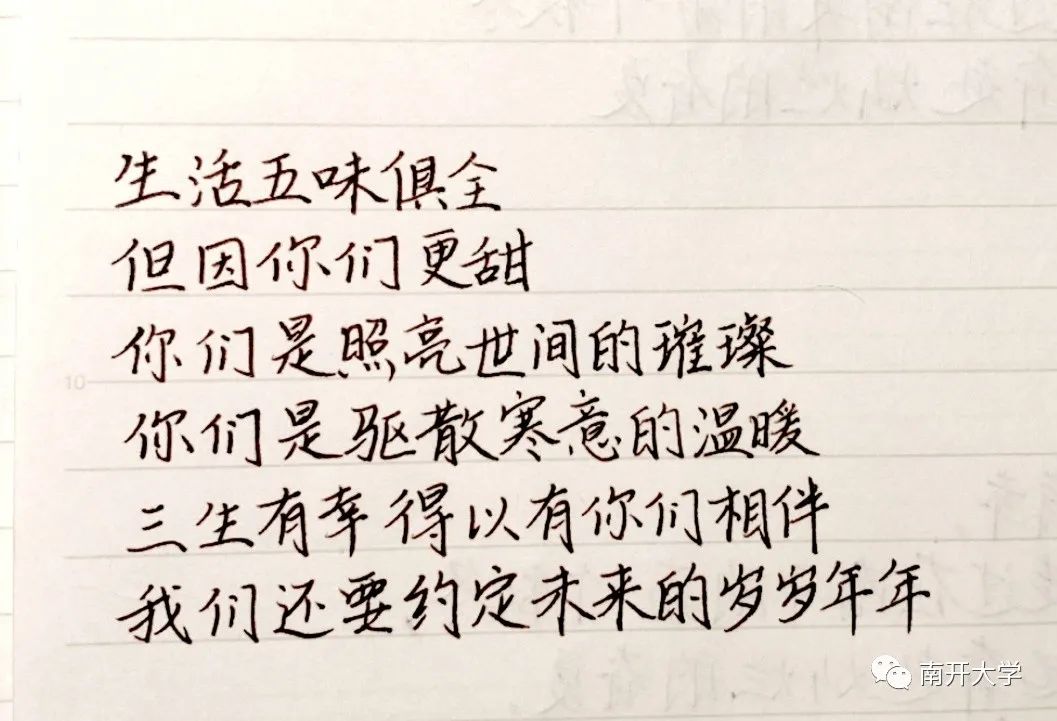 生活五味俱全
但因你们更甜
你们是照亮世间的璀璨
你们是驱散寒意的温暖
三生有幸得以有你们相伴
我们还要约定未来的岁岁年年
10
南开大学